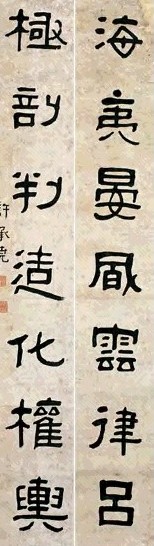 海夷晏風雲律呂
極剖判造化權輿
許承堯